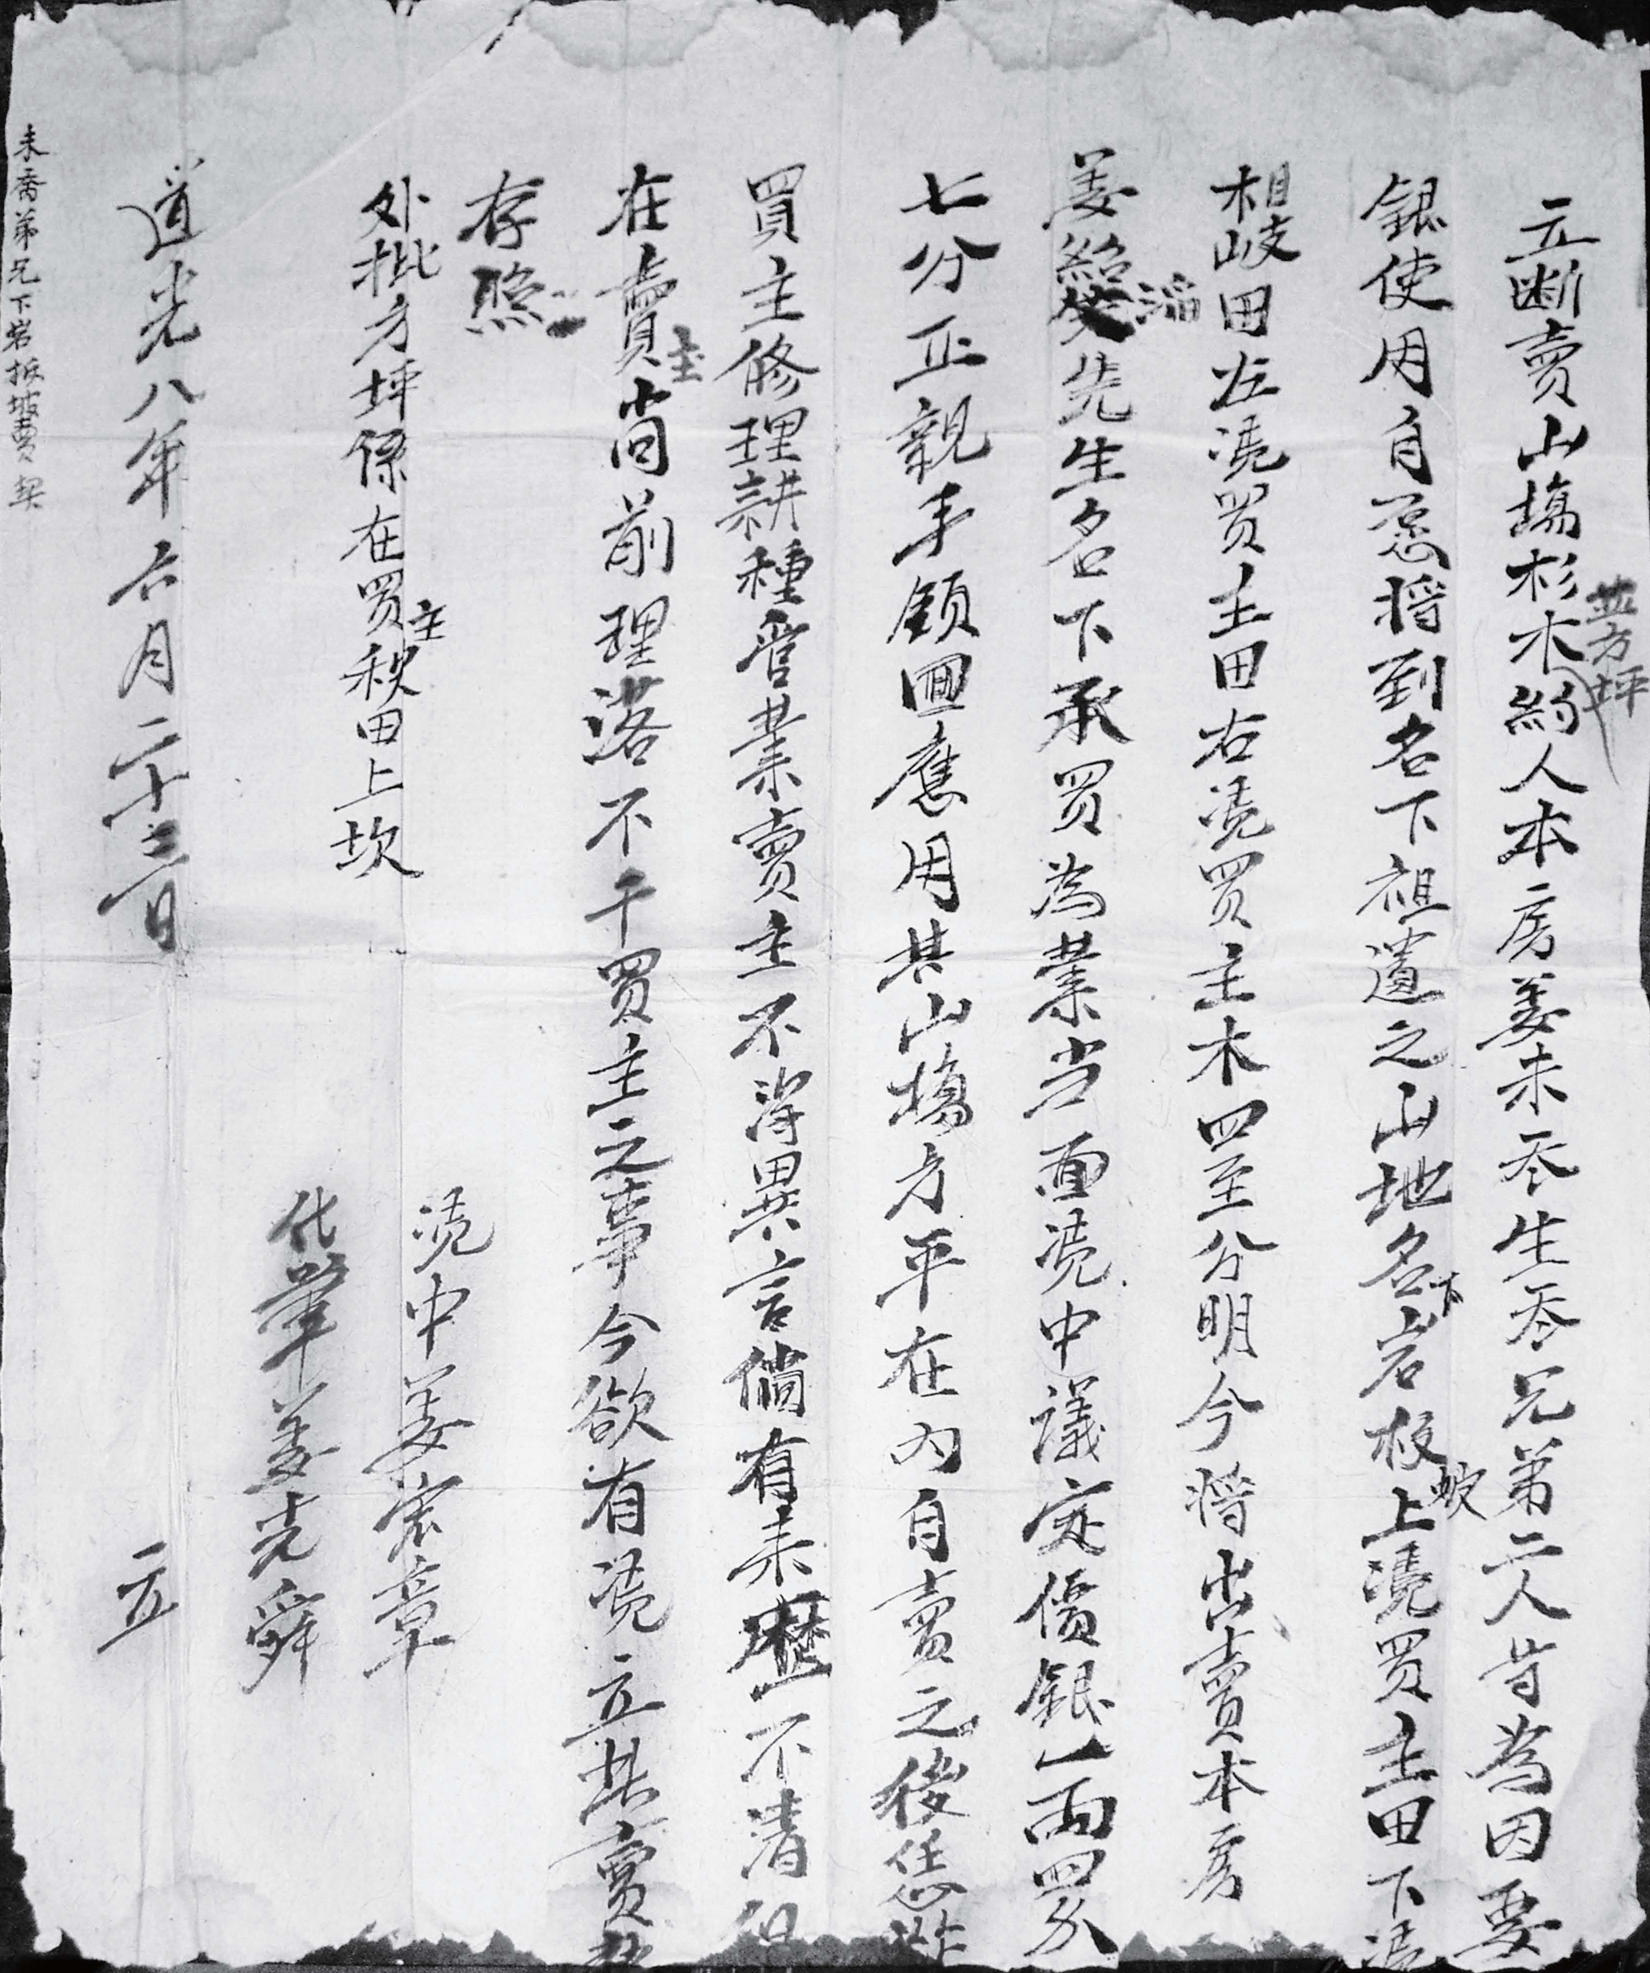 立断賣山塲杉木並方坪約人本房姜未乔生乔兄弟二人苛為因要
銀使用自愿將到名下祖遺之山地名下岩板坡上凴買主田下凴
相岐田左凴買主田右凴買主木四至分明今將出賣本房
姜紹滔先生名下承買為業當面凴中議定價銀一両四分
七分正親手領回應用其山塲方平在内自賣之後恁
買主修理耕種管業賣主不淂異言倘有来歷不清
在賣主尚前理落不干買主之事今欲有凴立其賣
存照
处批方坪係在買主秧田上坎
凴中姜宏章
代筆姜光舜
道光八年六月二十三日 立
未喬弟兄下岩板坡賣契